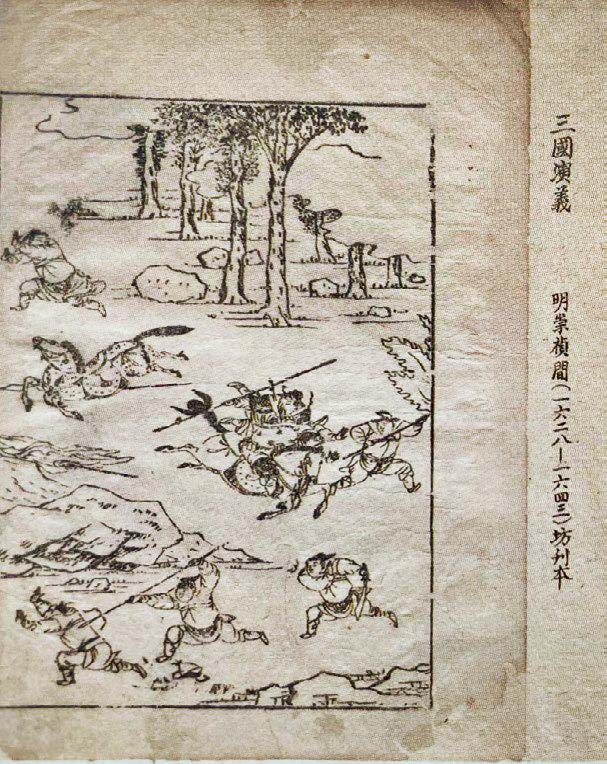 三國演義
明崇禎間（一六二八—一六四三）坊刊本